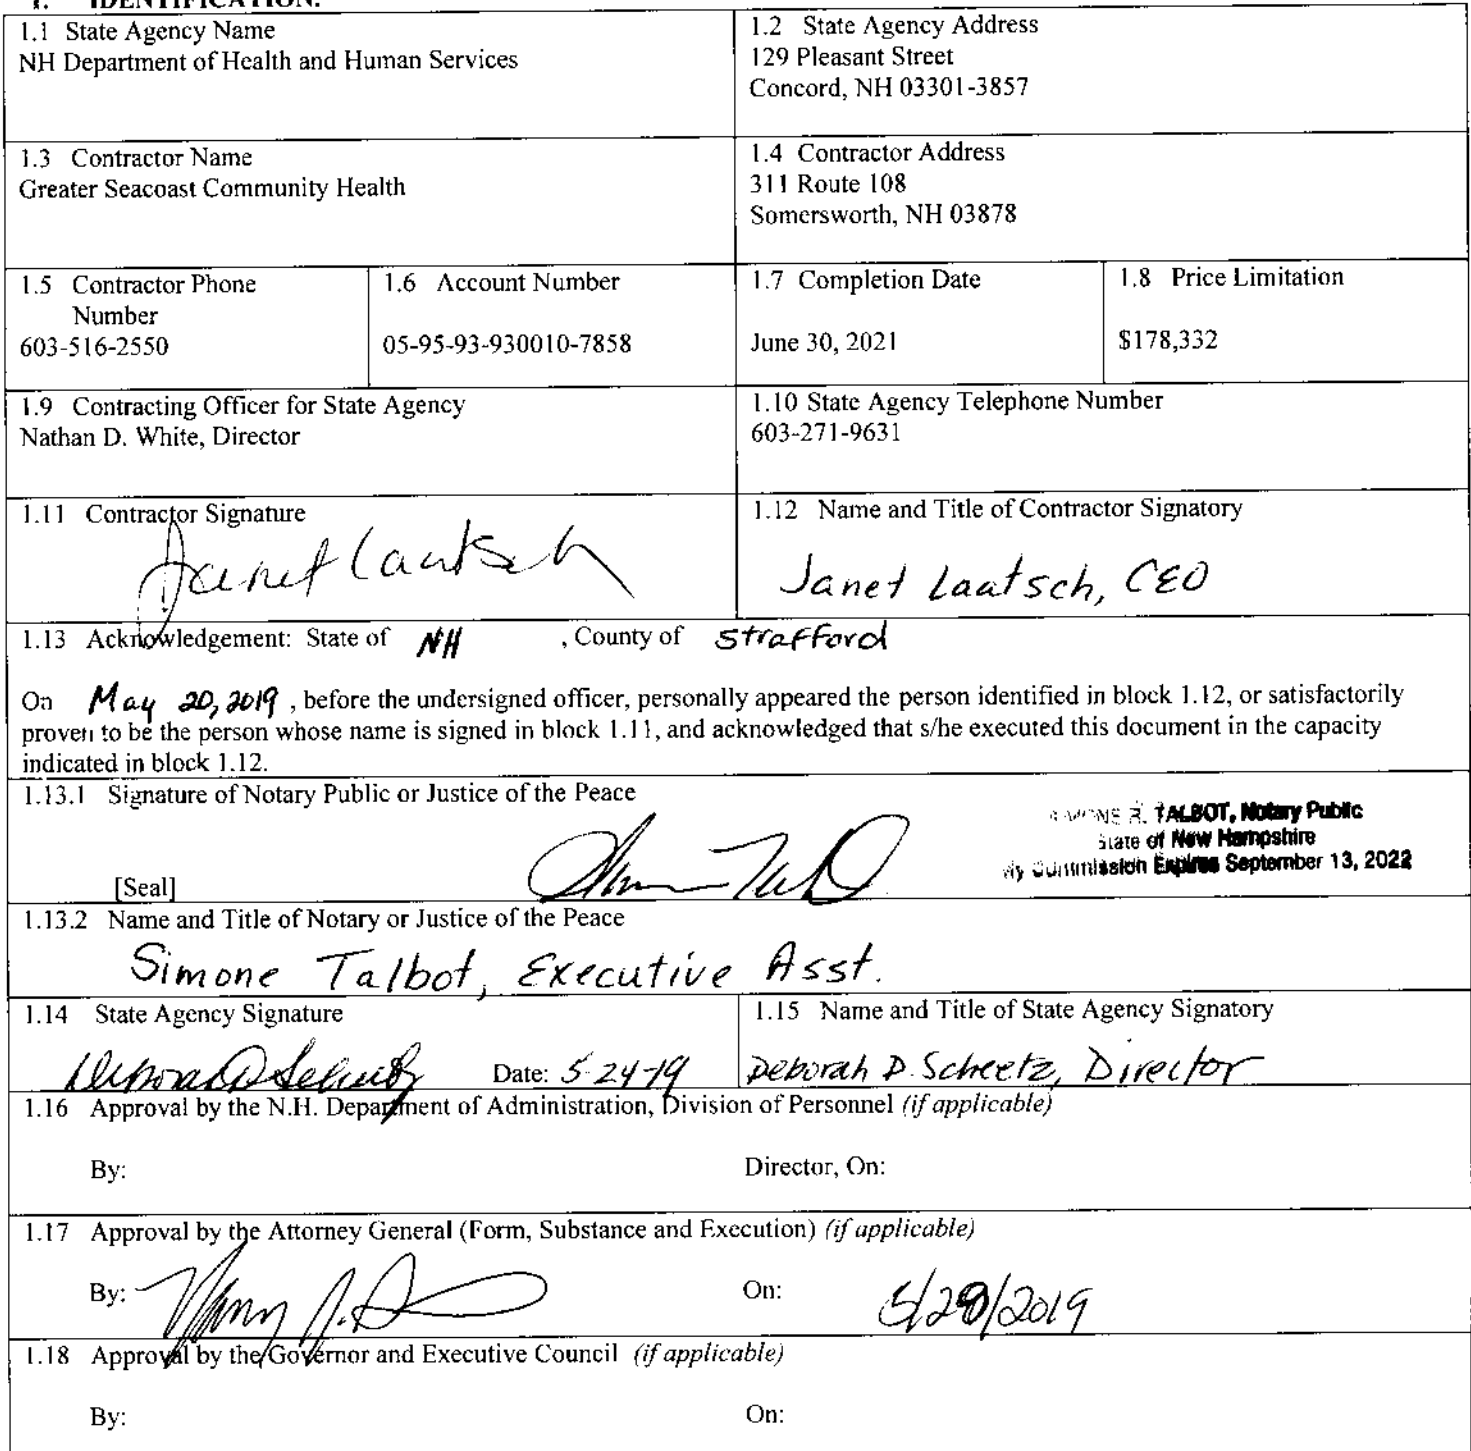 1. IDENTIFICATION.
1.1 State Agency Name
NH Department of Health and Human Services
1.2 State Agency Address
129 Pleasant Street
Concord, NH 03301-3857
1.3 Contractor Name
Greater Seacoast Community Health
1.4 Contractor Address
311 Route 108
Somersworth, NH 03878
1.5 Contractor Phone
Number
603-516-2550
1.6 Account Number
05-95-93-930010-7858
1.7 Completion Date
June 30, 2021
1.8 Price Limitation
$178,332
1.9 Contracting Officer for State Agency
Nathan D. White, Director
1.10 State Agency Telephone Number
603-271-9631
1.11 Contractor Signature
Janet Laatsch
1.12 Name and Title of Contractor Signatory
Janet Laatsch, CEO
1.13 Acknowledgement: State of NH , County of Strafford
On May 20, 2019 , before the undersigned officer, personally appeared the person identified in block 1.12, or satisfactorily
proven to be the person whose name is signed in block 1.11, and acknowledged that s/he executed this document in the capacity
indicated in block 1.12.
1.13.1 Signature of Notary Public or Justice of the Peace
SIMONE R. TALBOT, Notary Public
State of New Hampshire
My Commission Expires September 13, 2022
[Seal]
1.13.2 Name and Title of Notary or Justice of the Peace
Simone Talbot, Executive Asst.
1.14 State Agency Signature
Date: 5-24-19
1.15 Name and Title of State Agency Signatory
Deborah D. Scheetz, Director
1.16 Approval by the N.H. Department of Administration, Division of Personnel (if applicable)
By: Director, On:
1.17 Approval by the Attorney General (Form, Substance and Execution) (if applicable)
By: On: 5/29/2019
1.18 Approval by the Governor and Executive Council (if applicable)
By: On: